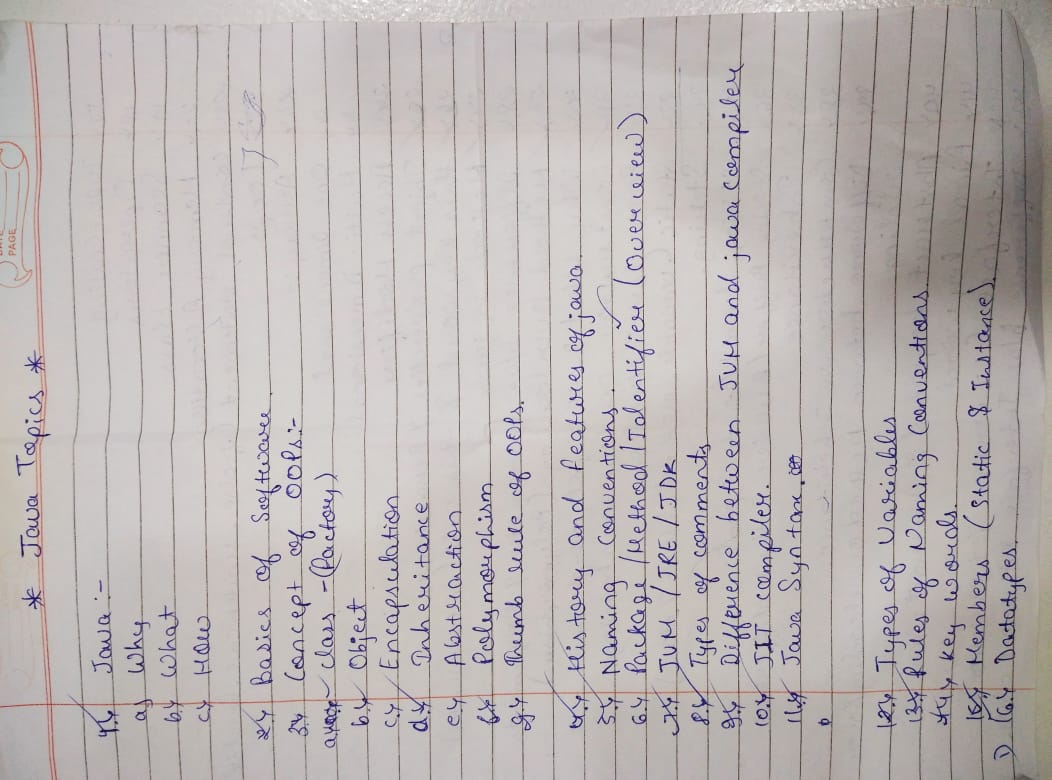 DATE
PAGE
* Java Topics *
1.) Java :-
a) Why
b.) What
c.) How
2.) Basics of Software.
3.) Concept of OOPs:-
a) class - (factory)
b.) Object
c.) Encapsulation
d.) Inheritance
e.) Abstraction
f.) Polymorphism
g.) Thumb rule of OOPs.
4.) History and features of java.
5.) Naming Conventions.
6.) Package /Method / Identifier (Overview)
7.) JVM / JRE / JDK
8.) Types of comments
9.) Difference between JVM and java compiler
10.) JIT compiler.
11.) Java Syntax.
12.) Types of Variables
13.) Rules of Naming Conventions.
14.) Key words.
15.) Members (Static & Instance).
16.) Datatypes.